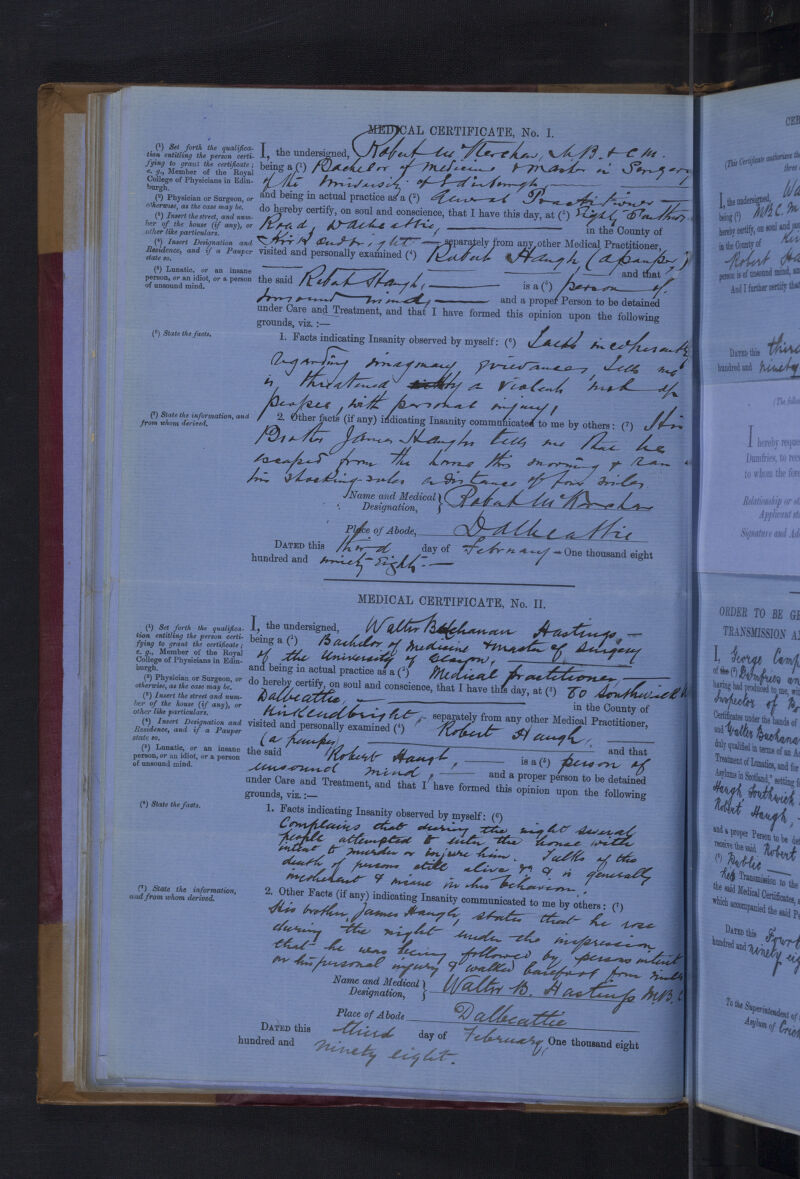 MEDICAL CERTIFICATE, No. I.
(¹) Set forth the qualifica-
tion entitling the person certi-
fying to grant the certificate;
e. g., Member of the Royal
College of Physicians in Edin-
burgh.
(²) Physician or Surgeon, or
otherwise, as the case may be.
(³) Insert the street, and num-
ber of the house (if any), or
other like particulars.
(⁴) Insert Designation and
Residence, and if a Pauper
state so.
(⁵) Lunatic, or an insane
person, or an idiot, or a person
of unsound mind.
(⁶) State the facts.
(⁷) State the information, and
from whom derived.
I, the undersigned, Robert McKerchar, M.B. & C.M.
being a (¹) Bachelor of Medicine & Master in Surgery
of the University of Edinburgh,
and being in actual practice as a (²) General Practitioner
do hereby certify, on soul and conscience, that I have this day, at (³) Eighty Southwick
Road, Dalbeattie, in the County of
Kirkcudbright separately from any other Medical Practitioner,
visited and personally examined (⁴) Robert Haugh (a pauper,)
and that
the said Robert Haugh, is a (⁵) person of
unsound mind, and a proper Person to be detained
under Care and Treatment, and that I have formed this opinion upon the following
grounds, viz. :—
1. Facts indicating Insanity observed by myself: (⁶) Talks incoherently
regarding imaginary grievances, tells me
is threatened by a violent mob of
people, with personal injury,
2. Other facts (if any) indicating Insanity communicated to me by others: (⁷) His
Brother James Haugh tells me that he
escaped from the house this morning & ran in
his stocking soles a distance of four miles
Name and Medical
Designation, } Robert McKerchar
Place of Abode, Dalbeattie
DATED this third day of February One thousand eight
hundred and ninety-eight.
MEDICAL CERTIFICATE, No. II.
(¹) Set forth the qualifica-
tion entitling the person certi-
fying to grant the certificate;
e. g., Member of the Royal
College of Physicians in Edin-
burgh.
(²) Physician or Surgeon, or
otherwise, as the case may be.
(³) Insert the street and num-
ber of the house (if any), or
other like particulars.
(⁴) Insert Designation and
Residence, and if a Pauper
state so.
(⁵) Lunatic, or an insane
person, or an idiot, or a person
of unsound mind.
(⁶) State the facts.
(⁷) State the information,
and from whom derived.
I, the undersigned, Walter Buchanan Hastings,
being a (¹) Bachelor of Medicine & Master of Surgery
of the University of Glasgow,
and being in actual practice as a (²) Medical practitioner,
do hereby certify, on soul and conscience, that I have this day, at (³) 80 Southwick
Dalbeattie, in the County of
Kirkcudbright, separately from any other Medical Practitioner,
visited and personally examined (⁴) Robert Haugh,
(a pauper) and that
the said Robert Haugh, is a (⁵) person of
unsound mind, and a proper person to be detained
under Care and Treatment, and that I have formed this opinion upon the following
grounds, viz.:—
1. Facts indicating Insanity observed by myself: (⁶)
Complains that during the night several
people attempted to enter the house with
intent to murder or injure him. Talks of the
death of persons still alive & is generally
incoherent & in his behaviour.
2. Other Facts (if any) indicating Insanity communicated to me by others: (⁷)
His brother, James Haugh, states that he rose
during the night under the impression
that he was being followed by persons intent
on his personal injury & walked barefoot four miles
Name and Medical
Designation, } Walter B. Hastings M.B. C
Place of Abode Dalbeattie
DATED this third day of February, One thousand eight
hundred and ninety eight.
CER
(This Certificate authorises the
three
I, the undersigned, Wa
being (¹) M.B.C.M
hereby certify, on soul and
in the County of Kir
Robert Ha
person is of unsound mind, and
And I further certify that
DATED this third
hundred and ninety
(The follow
I hereby reque
Dumfries, to rec
to whom the fore
Relationship or ot
Applicant sta
Signature and Ad
ORDER TO BE G
TRANSMISSION A
I, George Camp
of the (¹) Dumfries an
having had produced to me, wi
Inspector of Po
Certificates under the hands of
and Walter Buchana
duly qualified in terms of an A
Treatment of Lunatics, and for
Asylums in Scotland," setting f
Haugh, Southwick
Robert Haugh,
and a proper Person to be de
receive the said Robert
(²)
Transmission to the
the said Medical Certificates, a
which accompanied the said P
DATED this Fourt
hundred and ninety eig
To the Superintendent of
Asylum of Crich